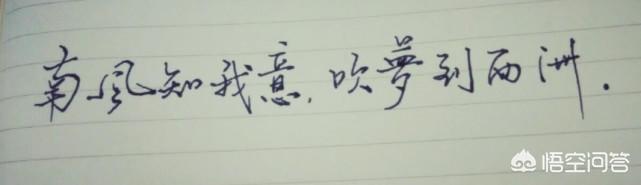 南风知我意,吹夢到西洲.
悟空问答